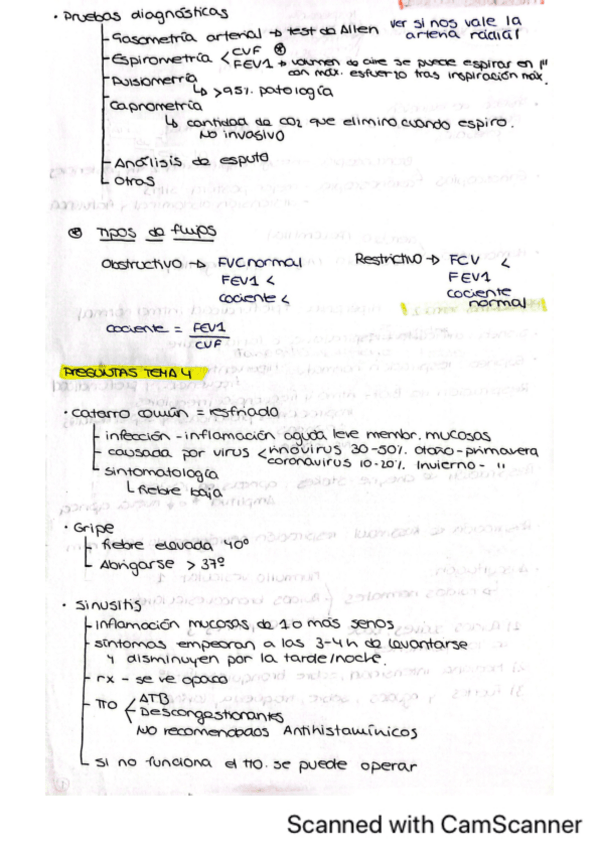 · Pruebas diagnósticas
Gasometría arterial → test de Allen ver si nos vale la arteria radial
Espirometría < CVF ⊛
FEV1 → volumen de aire se puede espirar en 1"
con máx. esfuerzo tras inspiración máx.
Pulsiometría
↳ >95% patología
Capnometría
↳ cantidad de CO2 que elimino cuando espiro.
NO invasivo
Análisis de esputo
Otros
⊛ Tipos de flujos
Obstructivo → FVC normal
FEV1 <
cociente <
Restrictivo → FCV <
FEV1
cociente normal
cociente = FEV1
CVF
PREGUNTAS TEMA 4
· Catarro común = resfriado
infección - inflamación aguda leve membr. mucosas
causada por virus < rinovirus 30-50% otoño - primavera
coronavirus 10-20% Invierno - "
sintomatología
fiebre baja
· Gripe
fiebre elevada 40º
Abrigarse > 37º
· Sinusitis
inflamación mucosas de 1 o más senos
síntomas empeoran a las 3-4h de levantarse
y disminuyen por la tarde/noche.
rx - se ve opaco
TTO < ATB
Descongestionantes
NO recomendados Antihistamínicos
Si no funciona el tto. se puede operar
Scanned with CamScanner